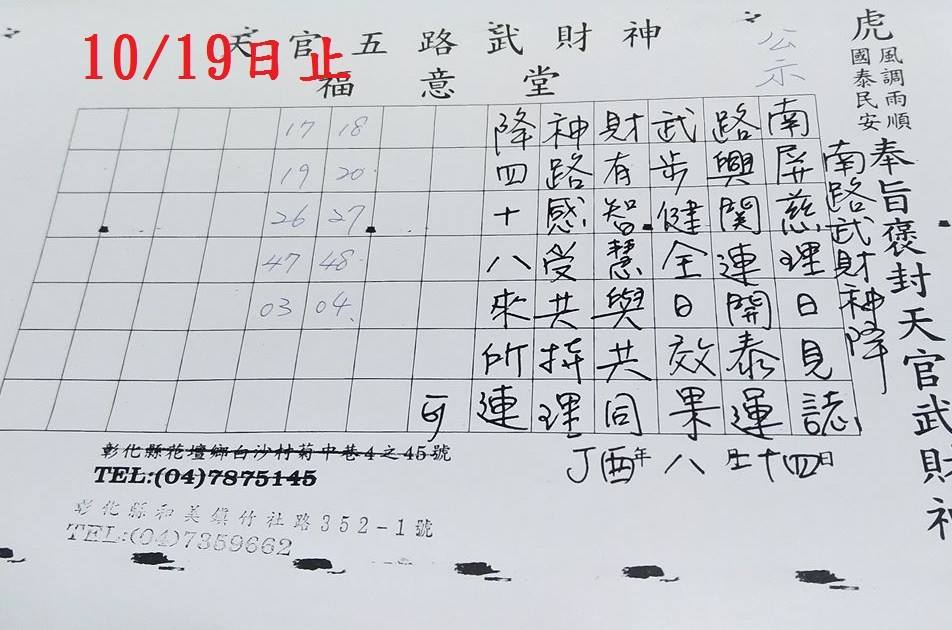 10/19日止
天官五路武財神
福意堂
公示
虎
風調雨順
國泰民安
奉旨褒封天官武財神
南路武財神降
南屏慈理日見誌
路興関連開泰運
武步健全日效果
財有智慧與共同
神路感受共持理
降四十八來所連
可
17 18
19 20
26 27
47 48
03 04
丁酉年八月十四日
彰化縣花壇鄉白沙村菊中巷4之45號
TEL:(04)7875145
彰化縣和美鎮竹社路352-1號
TEL:(04)7359662